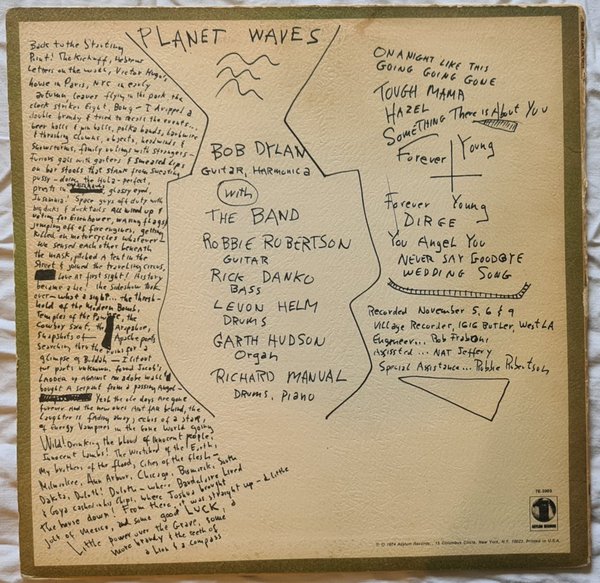 PLANET WAVES
Back to the Starting
Point! The Kickoff, Hebrew
Letters on the walls, Victor Hugo's
house in Paris, NYC in early
autumn leaves flying in the park, the
clock strikes Eight, Bong - I dropped a
double brandy & tried to recall the events...
beer halls & pin balls, polka bands, barbwire
& thrashing clowns, objects, headwinds &
snowstorms, family outings with strangers -
Furious gals with garters & smeared Lips
on bar stools that stank from sweating
pussy - doing the Hula - perfect,
priests in overhauls, glassy eyed,
Insomnia! Space guys off duty with
big dicks & ducktails All wired up &
voting for Eisenhower, waving flags &
jumping off of fire engines, getting
killed on motorcycles whatever -
We sensed each other beneath
the mask, pitched a tent in the
Street & joined the traveling circus,
Love at first sight! History
became a Lie! the sideshow took
over - what a sight... the thresh-
hold of the Modern Bomb,
Temples of the Pawnee, the
Cowboy Saint, the Arapahoe,
Snapshots of Apache poets
Searching thru the ruins for a
glimpse of Buddah - I lit out
for parts unknown, found Jacob's
Ladder up against an adobe wall &
bought a serpent from a passing angel -
Yeah the ole days are gone
forever and the new ones Aint far behind, the
Laughter is fading away, echos of a star,
of Energy Vampires in the Gone World going
Wild! Drinking the blood of innocent people,
Innocent Lambs! The Wretched of the Earth,
My brothers of the flood, Cities of the flesh -
Milwaukee, Ann Arbor, Chicago, Bismarck, South
Dakota, Duluth! Duluth - where Baudelaire Lived
& Goya cashed in his Chips, where Joshua brought
The house down! From there, it was straight up - a Little
jolt of Mexico, and some good LUCK, a
Little power over the Grave, some
more brandy & the teeth of
a Lion & a compass
BOB DYLAN
GUITAR, HARMONICA
with
THE BAND
ROBBIE ROBERTSON
GUITAR
RICK DANKO
BASS
LEVON HELM
DRUMS
GARTH HUDSON
Organ
RICHARD MANUAL
DRUMS, PIANO
ON A NIGHT LIKE THIS
GOING GOING GONE
TOUGH MAMA
HAZEL
SOMETHING There is About You
Forever Young
Forever Young
DIRGE
You Angel You
NEVER SAY GOODBYE
WEDDING SONG
Recorded November 5, 6 & 9
Village Recorder, 1616 Butler, West LA
Engineer... Rob Fraboni
Assisted... NAT Jeffery
Special Assistance... Robbie Robertson
7E-1003
ASYLUM RECORDS
© ℗ 1974 Asylum Records, 15 Columbus Circle, New York, N.Y. 10023. Printed in U.S.A.